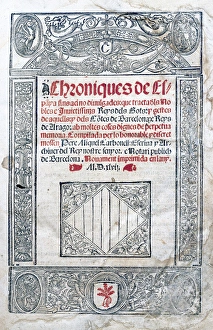 C
Chroniques de Es
paya fins aci no diuulgades: que tracta dels No
bles e Inuictissims Reys dels Gots: y gestes
de aquells: y dels Cõtes de Barcelona: e Reys
de Arago: ab moltes coses dignes de perpetua
memoria. Compilada per lo honorable y discret
mossen Pere Miquel Carbonell: Escriua y Ar
chiuer del Rey nostre senyor. e Notari publich
de Barcelona. Nouament imprimida en lany.
M.D.xlvij.